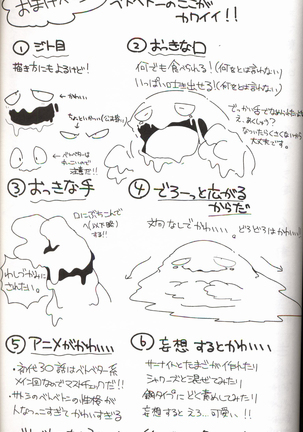 おまけペー
ベトベトンのここが
カワイイ!!
① ジト目
描き方にもよるけど!
← かわいい
② おっきな口
何でも食べられる!(何をとは言わない)
いっぱい吐き出せる!(何をとは言わない)
でっかい舌でなめられたいよね
え、あくしゅう?
なついたらくさくないから
大丈夫です。
③ おっきな手
わしづかみに
されたい。
④ でろーっと広がる
からだ
文句なしでかわいい。どろどろはかわいい
⑤ アニメがかわいい
・初代30話はベトベター系
メイン回なのでマストチェックだ!!
・サトシのベトベトンの性格が
人なつこすぎてかわいすぎる
⑥ 妄想するとかわいい
サーナイトとたまごが作れたり
シャワーズと混ぜてみたり
鋼タイプをどく責めしてみたり
妄想するとえろ…可愛い!!